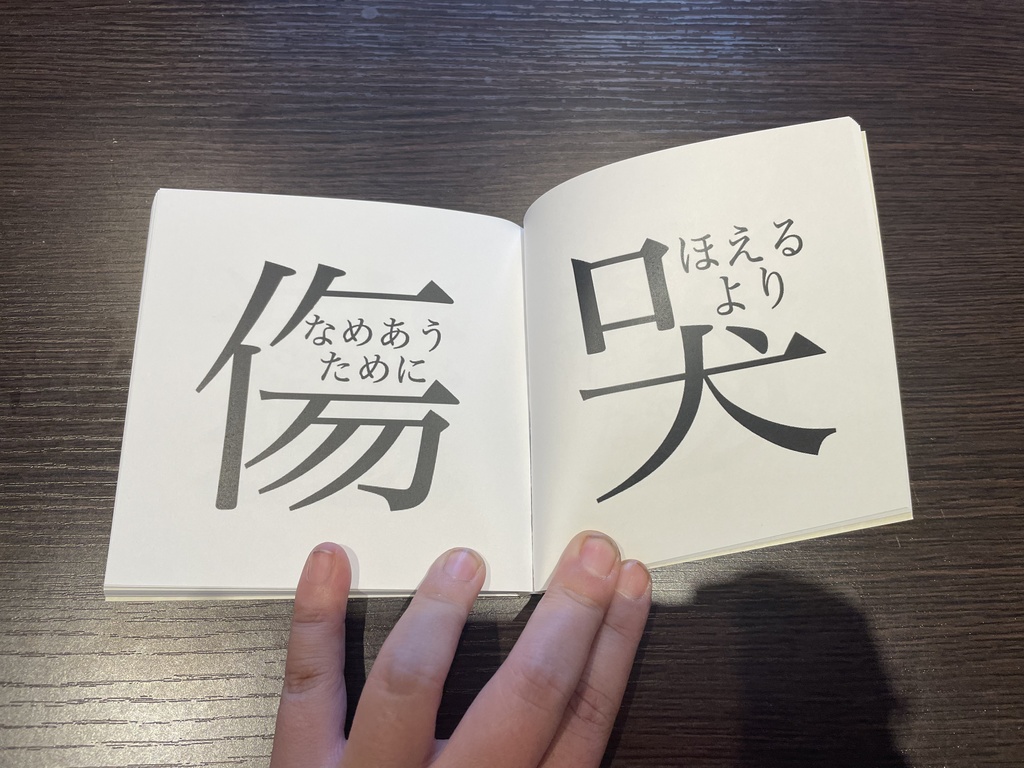 傷
なめあう
ために
哭
ほえる
より